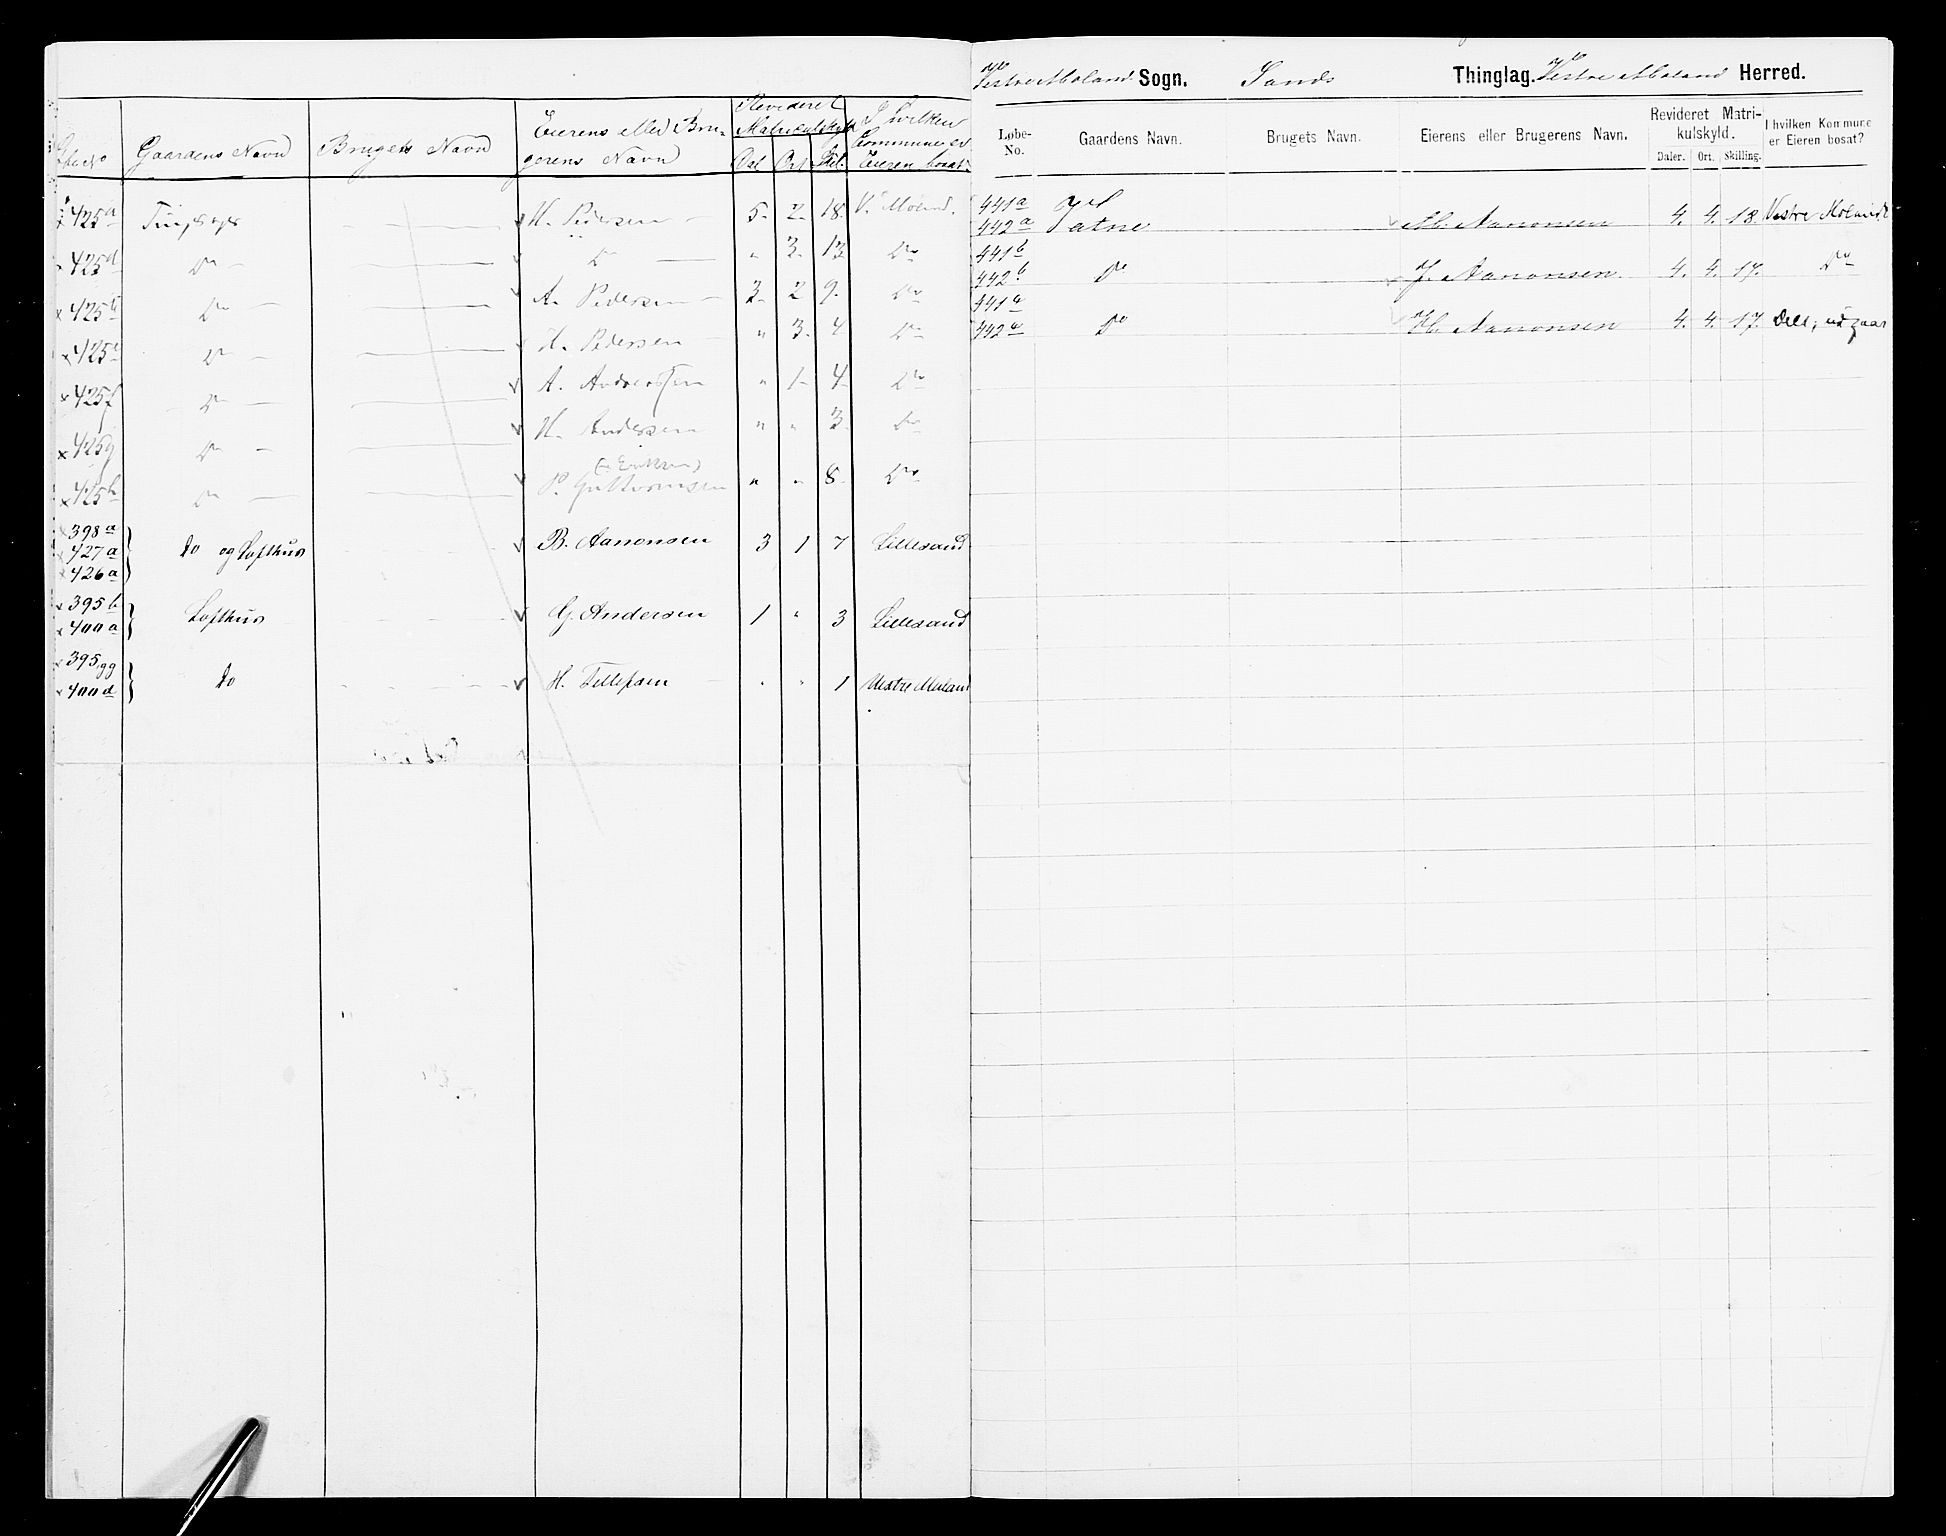 Gaardens Navn Brugets Navn Eierens eller Bru-
gerens Navn Revideret
Matriculskyld
Dal Ort Skl. I hvilken
Commune er
Eieren bosat.
425a H. Pedersen 5. 2. 18. V. Moland.
425d Do Do " 3. 13 Do
425 Do A. Pedersen 3. 2 9. Do
425 Do H. Pedersen " 3. 4 Do
425f Do A. Andersen " 1. 4. Do
425g Do H. Andersen " " 3. Do
425h Do P. Guttormsen " " 8. Do
398a
427a
426a do og Lofthus B. Aanonsen 3 1 7 Lillesand
395b
400a Lofthus G. Andersen 1 " 3 Lillesand
395gg
400d do H. Tellefsen " " 1 Vestre Moland
Vestre Moland Sogn. Sands Thinglag. Vestre Moland Herred.
Løbe-
No. Gaardens Navn. Brugets Navn. Eierens eller Brugerens Navn. Revideret Matri-
kulskyld.
Daler. Ort. Skilling. I hvilken Kommune
er Eieren bosat?
441a
442a Aanonsen 4. 4. 18. Vestre Moland
441b
442b Do J. Aanonsen 4. 4. 17. Do
441
442 Do Aanonsen 4. 4. 17. udgaar